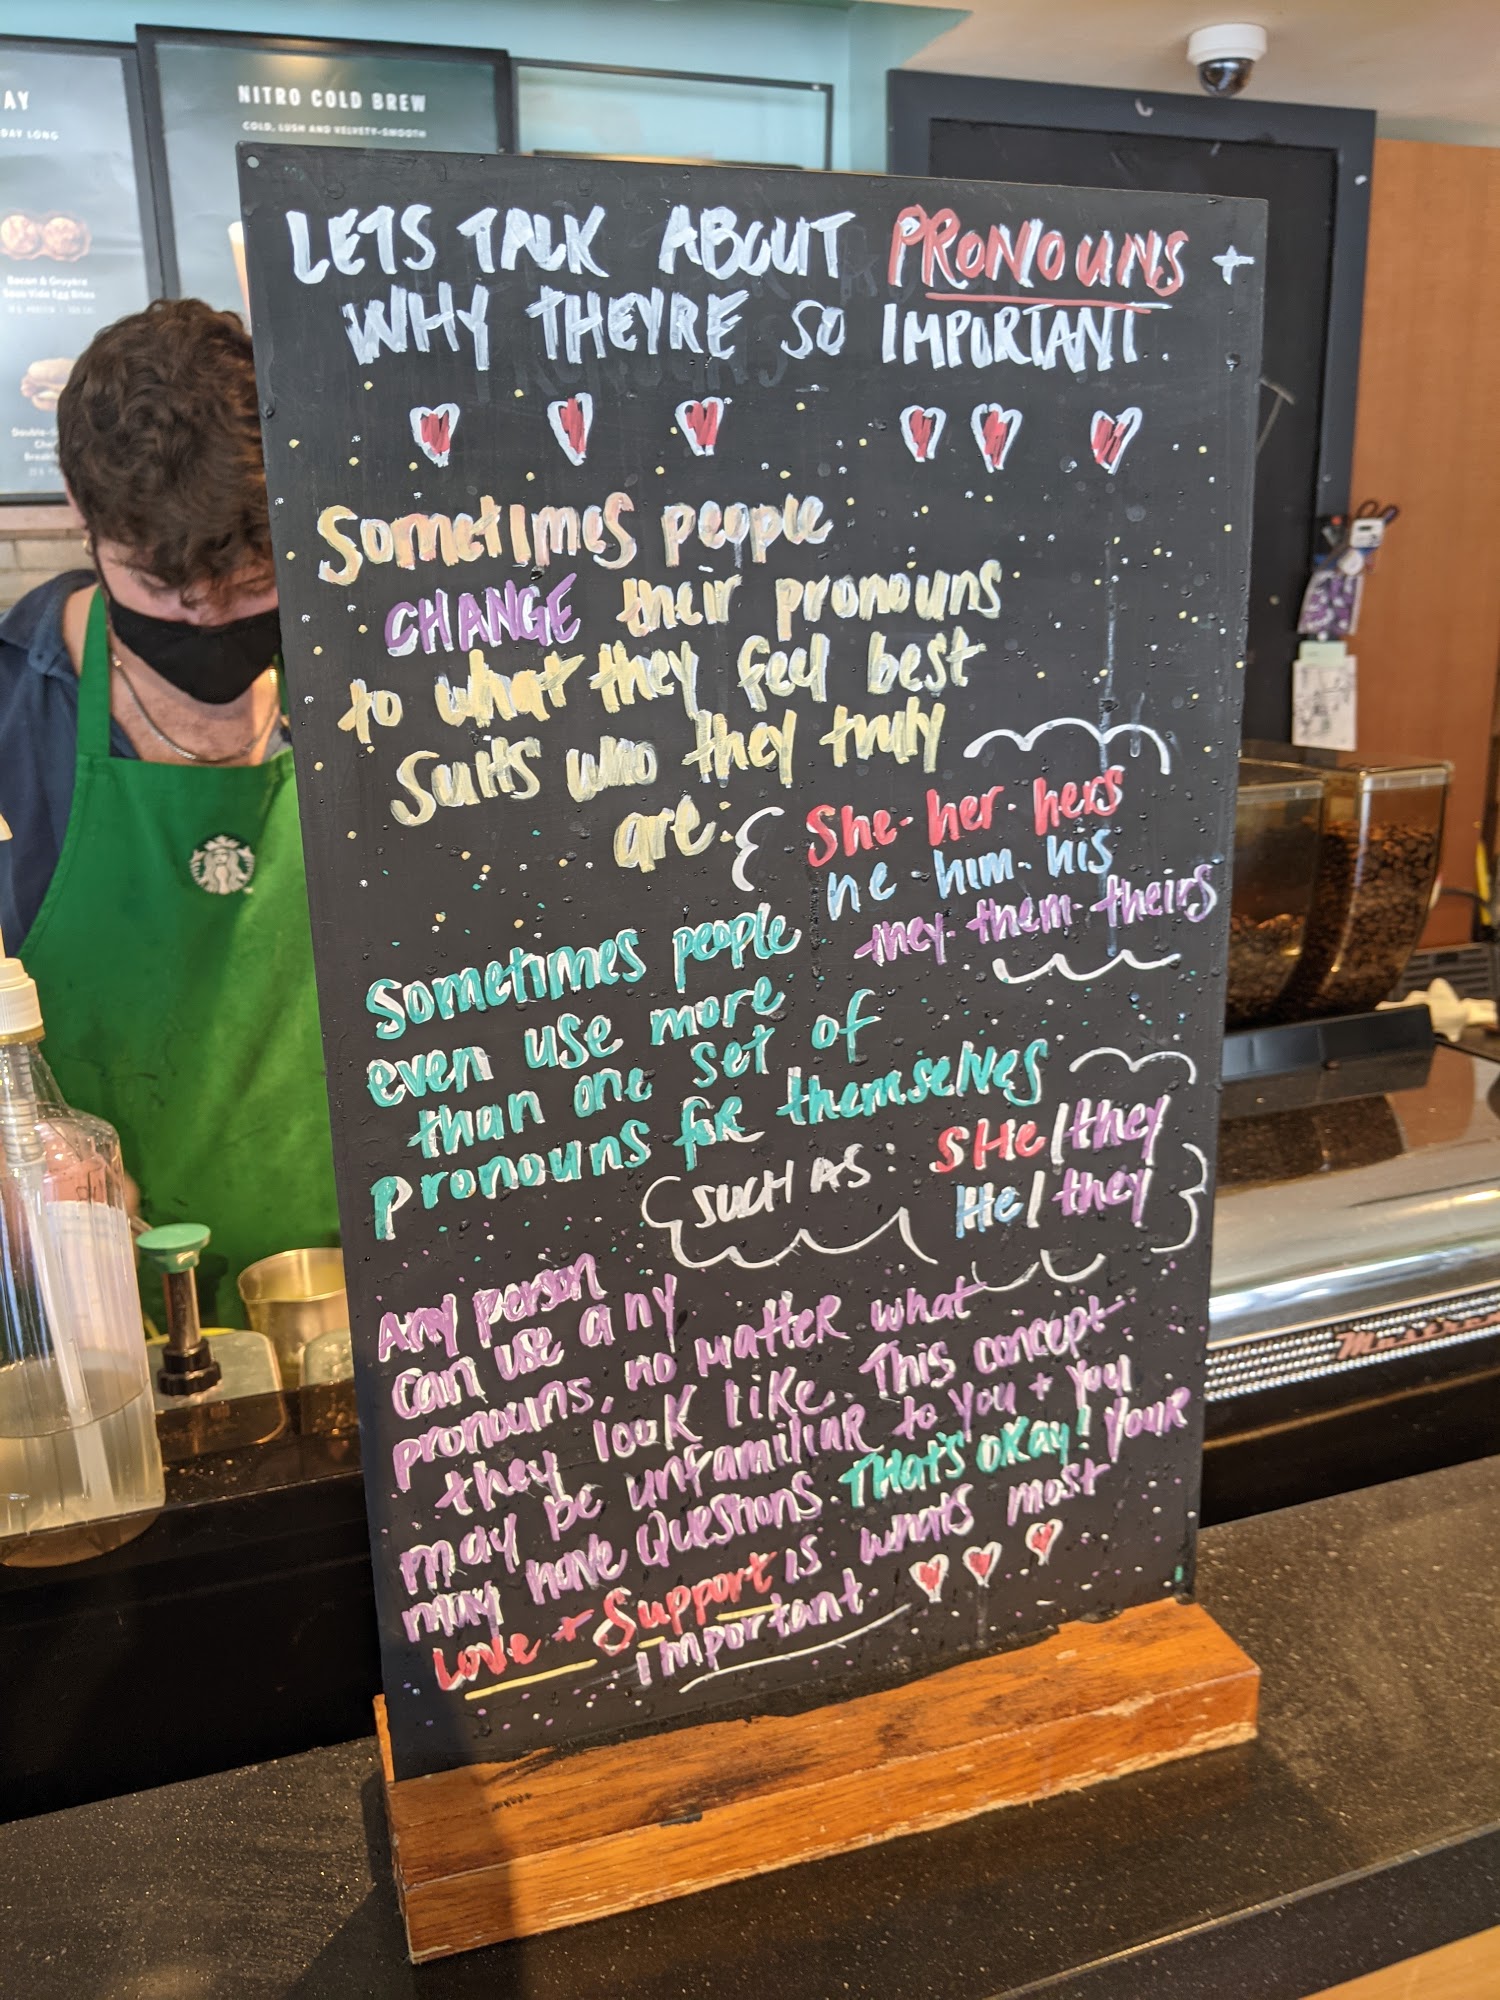 AY
DAY LONG
Bacon & Gruyère
Sous Vide Egg Bites
NITRO COLD BREW
COLD, LUSH AND VELVETY-SMOOTH
LETS TALK ABOUT PRONOUNS +
WHY THEYRE SO IMPORTANT
Sometimes people
CHANGE their pronouns
to what they feel best
suits who they truly
are.
She · her · hers
he · him · his
they · them · theirs
Sometimes people
even use more
than one set of
pronouns for themselves
SUCH AS: SHe/they
He/they
Any person
can use any
pronouns, no matter what
they look like. This concept
may be unfamiliar to you + you
may have questions. THat's okay! YouR
Love + Support is whats most
important.